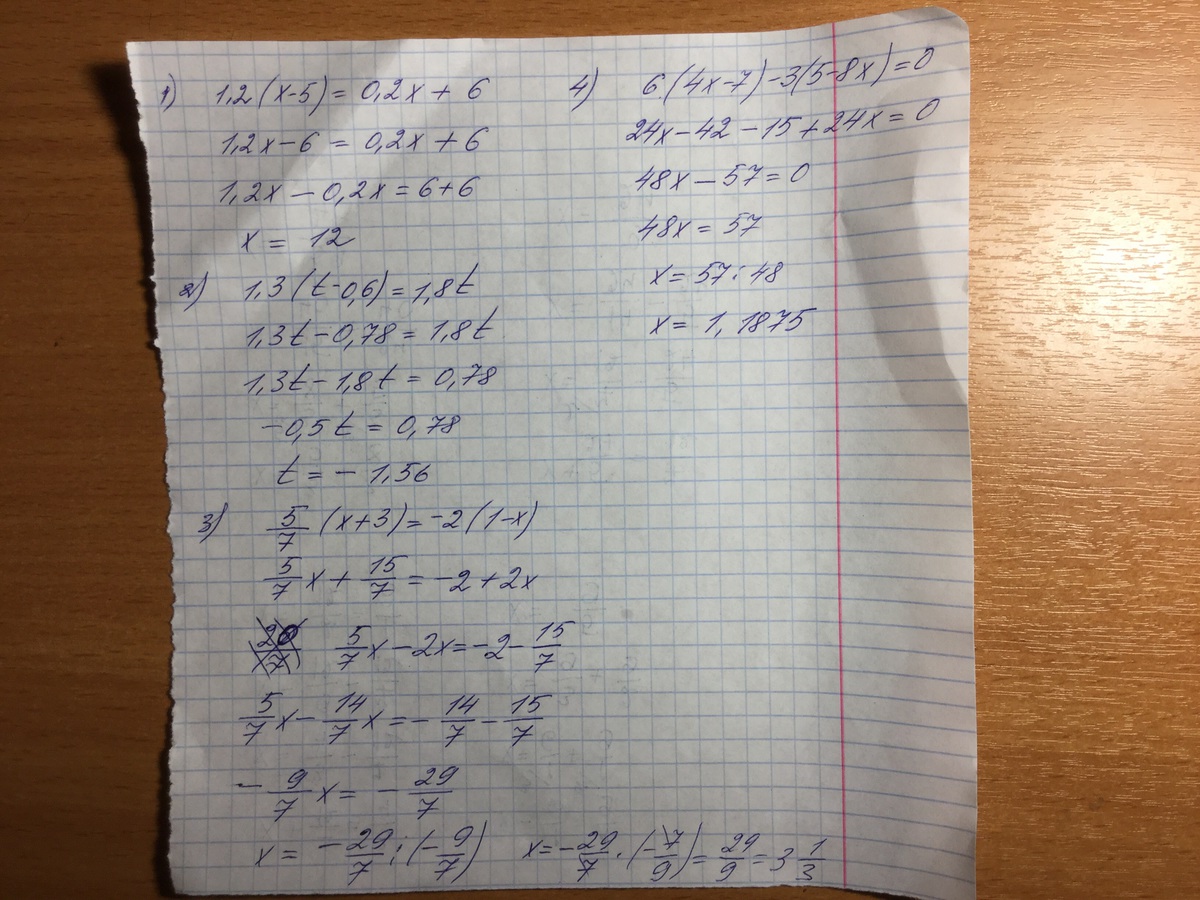 1) 1,2(x-5) = 0,2x + 6
1,2x-6 = 0,2x + 6
1,2x - 0,2x = 6+6
x = 12
2) 1,3(t-0,6) = 1,8t
1,3t - 0,78 = 1,8t
1,3t - 1,8t = 0,78
-0,5t = 0,78
t = - 1,56
3) 5/7 (x+3) = -2(1-x)
5/7 x + 15/7 = -2+2x
5/7 x - 2x = -2 - 15/7
5/7 x - 14/7 x = - 14/7 - 15/7
- 9/7 x = - 29/7
x = - 29/7 : (- 9/7) x = - 29/7 · (- 7/9) = 29/9 = 3 1/3
4) 6(4x-7)-3(5-8x)=0
24x-42-15+24x=0
48x-57=0
48x = 57
x = 57:48
x = 1,1875